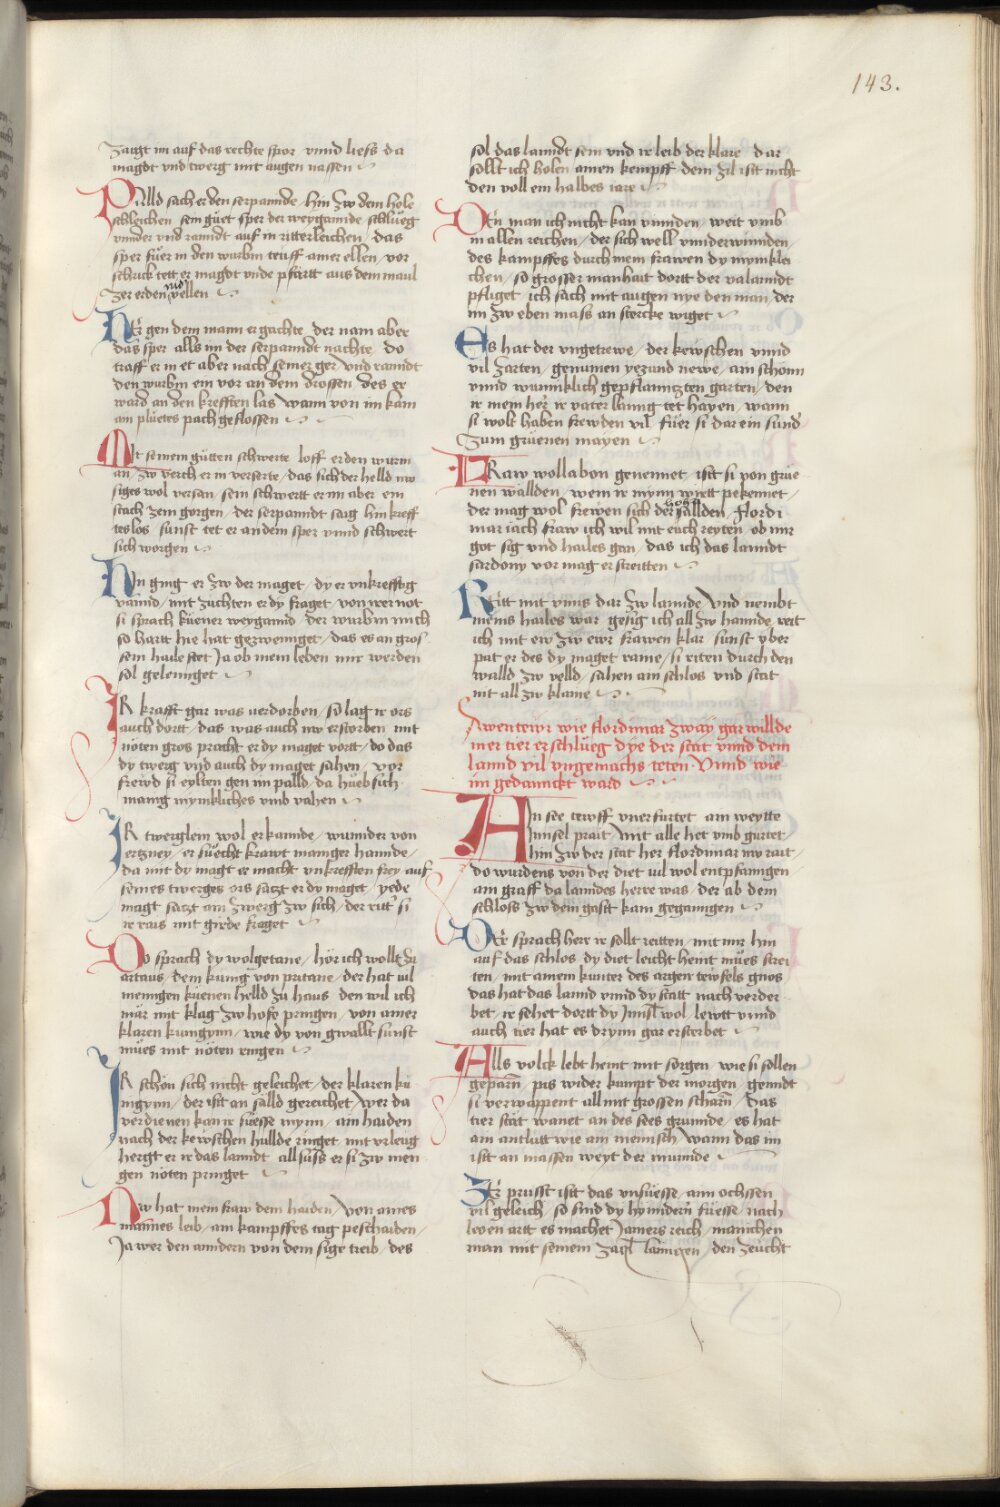 143.
zaigt im auf das rechte spor vnnd liess da
magdt vnd twerg mit augen nassen
Palld sach er den serpannde hin zw dem hole
schleichen sein guet sper der weygannde schlueg
vnnder vnd ranndt auf in ritterleichen das
sper fuer in den wurbm teuff ainer ellen vor
schrick tett er magdt vnde pfärtt aus dem maul
zer erden nid vellen
Er gen dem mann er gachte der nam aber
das sper alls im der serpanndt nachte do
traff er in et aber nach seiner ger vnd ranndt
den wurbm ein vor an dem drossen des er
ward an den krefften las wann von im kam
ain pluetes pach geflossen
Mit seinem gütten schwerte loff er den wurm
an zw verch er in verserte das sich der helld nw
siges wol versan sein schwertt er im aber ein
stach zem gorgen der serpanndt saig hin kreff
telos sunst tet er an dem sper vnnd schwert
sich worgen
Hin ging er zw der maget dy er vnkrefftig
vannd mit züchten er dy fraget von wer not
si sprach küener weygannd der wurbm mich
so hartt hie hat gezwenget das es an gros
sem haile stet Ja ob mein leben mir werden
sol gelennget
Ir krafft gar was verdorben so lag ir ors
auch dortt das was auch nw erstorben mit
nöten gros pracht er dy maget vortt do das
dy twerg vnd auch dy maget sahen vor
frewd si eylten gen im palld da hüeb sich
manig mynnkliches vmb vahen
Ir twerglein wol erkannde wurmder von
ertzney er suecht krawt mainger hannde
da mit dy magt er macht vnkrefften frey auf
seines twerges ors satzt er dy maget yede
magt satzt ain zwerg zw sich der ritt si
ir rais mit girde fraget
Do sprach dy wolgetane hör ich wollt zu
artaus dem kunig von pritane der hat vil
menngen küenen helld zu haus den wil ich
mär mit klag zw hofe pringen von ainer
klaren kunginn wie dy von gwallt sunst
mues mit nöten ringen
Ir schön sich nicht geleichet der klaren kü
nigynn der istt an sälld gereichet wer da
verdienen kan ir süesse mynn ain haiden
nach der kewschen hullde ringet mit vrleug
hergt er ir das lanndt all suss er si zw men
gen nöten pringet
Nw hat mein fraw dem haiden von aines
mannes leib ain kampffes tag peschaiden
Ja wer den anndern von dem sige treib des
sol das lanndt sein vnd ir leib der klare dar
sollt ich holen ainen kempff dem zil istt nicht
den voll ein halbes iare
Den man ich nicht kan vinnden weit vmb
in allen reichen der sich well vnnderwinnden
des kampffes durch mein frawen dy mynnklei
chen so grosser manhait dortt der valanndt
pfliget ich sach mit augen nye den man der
im zw eben mass an stercke wiget
Es hat der vngetrewe der kewschen vnnd
vil zarten genumen yezund newe ain schonn
vnnd wunnklich gepflanntzten garten den
ir mein her ir vater lanng tet hayen wann
si wolt haben frewden vil füer si dar ein sund
zum grüenen mayen
Fraw wollabon genennet istt si von grüe
nen wallden wem ir mynn wirtt pekennet
der mag wol frewen sich der hohen sällden flordi
mar iach fraw ich wil mit euch reyten ob mir
got sig vnd hailes gan das ich das lanndt
sardony vor mag er streitten
Ritt mit vnns dar zw lannde Vnd nembt
meins hailes war gesig ich all zw hannde reit
ich mit ew zw ewr frawen klar sunst vber
pat er des dy maget raine si riten durch den
walld zw velld sahen ain schlos vnd stat
nit all zw klaine
Awentewr wie flordimar zway gar willde
mer tier erschlüeg dye der stat vnnd dem
lannd vil vngemachs teten Vnnd wie
im gedannckt ward
Ain see tewff vnerfurtet ain weytte
Innsel prait mit alle het vmb gürtet
hin zw der stat her flordimar nw rait
do wurdens von der diet vil wol entpfanngen
ain graff da lanndes herre was der ab dem
schloss zw dem gastt kam gegangen
Der sprach herr ir sollt reitten mit mir hin
auf das schlos dy diet leicht heint mües strei
ten mit ainem kunter des argen tewfels gnos
das hat das lannd vnnd dy statt nach verder
bet ir sehet dortt dy Innsl wol lewtt vnnd
auch tier hat es drynn gar ersterbet
Alls volck lebt heint mit sorgen wie si sollen
geparn pis wider kumpt der morgen genndt
si verwappent all mit grossen scharn das
tier stät wanet an des sees grunnde es hat
ain antlutt wie ain mennsch wann das im
istt an massen weyt der munnde
Er prusst istt das vnsüesse ainn ochssen
vil geleich so sind dy hynndern füesse nach
leven artt es machet Jamers reich mannichen
man mit seinem zagl lanngen den zeucht